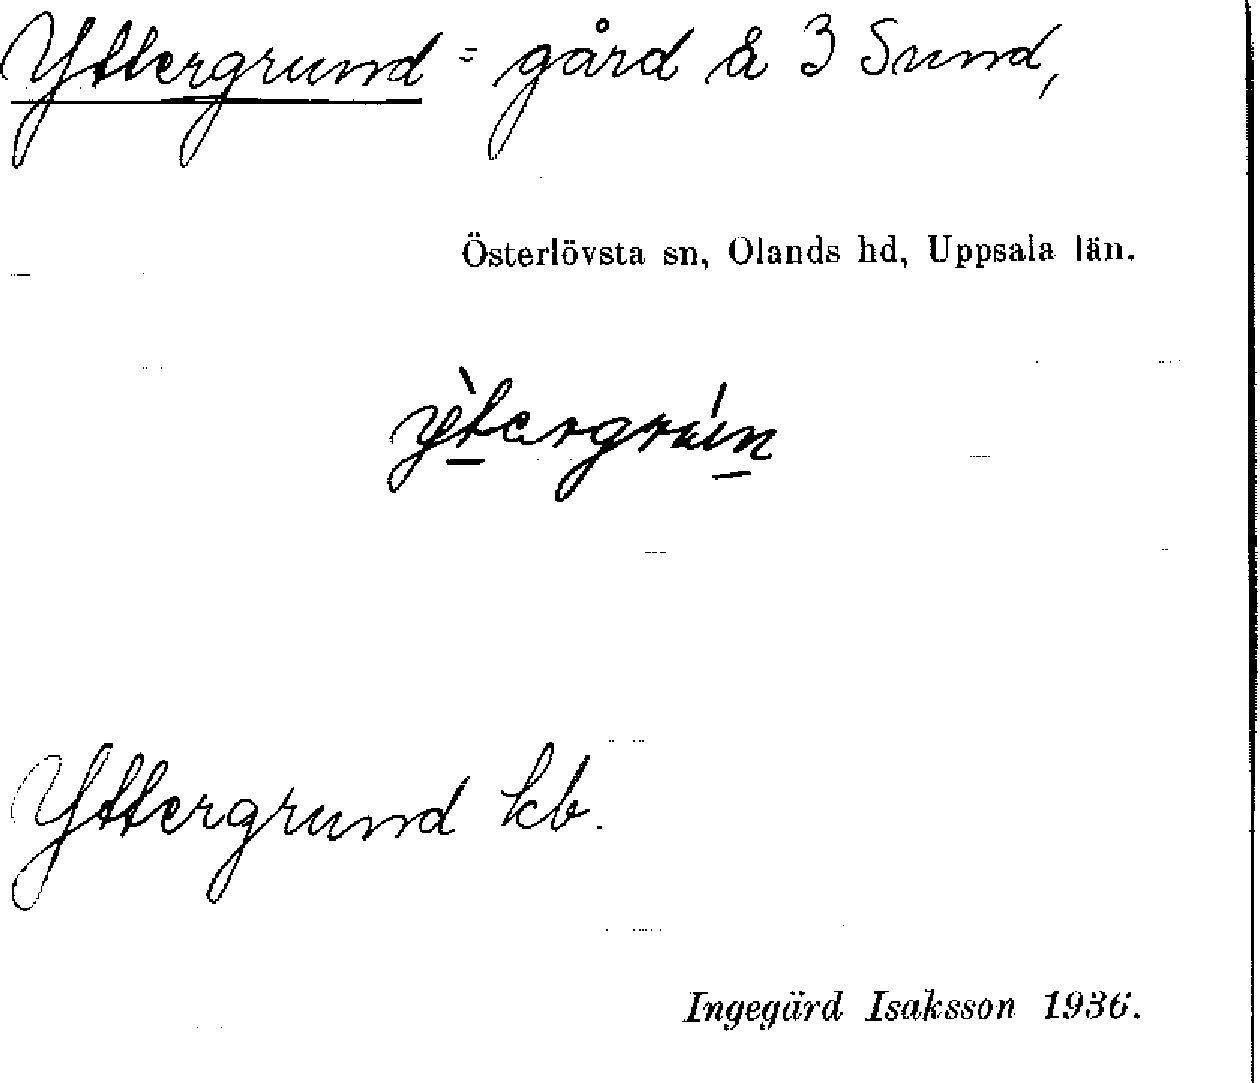 Yttergrund = gård å 3 Sund,
Österlövsta sn, Olands hd, Uppsala län.
ỳt̲ergrún̲
Yttergrund kb.
Ingegärd Isaksson 1936.